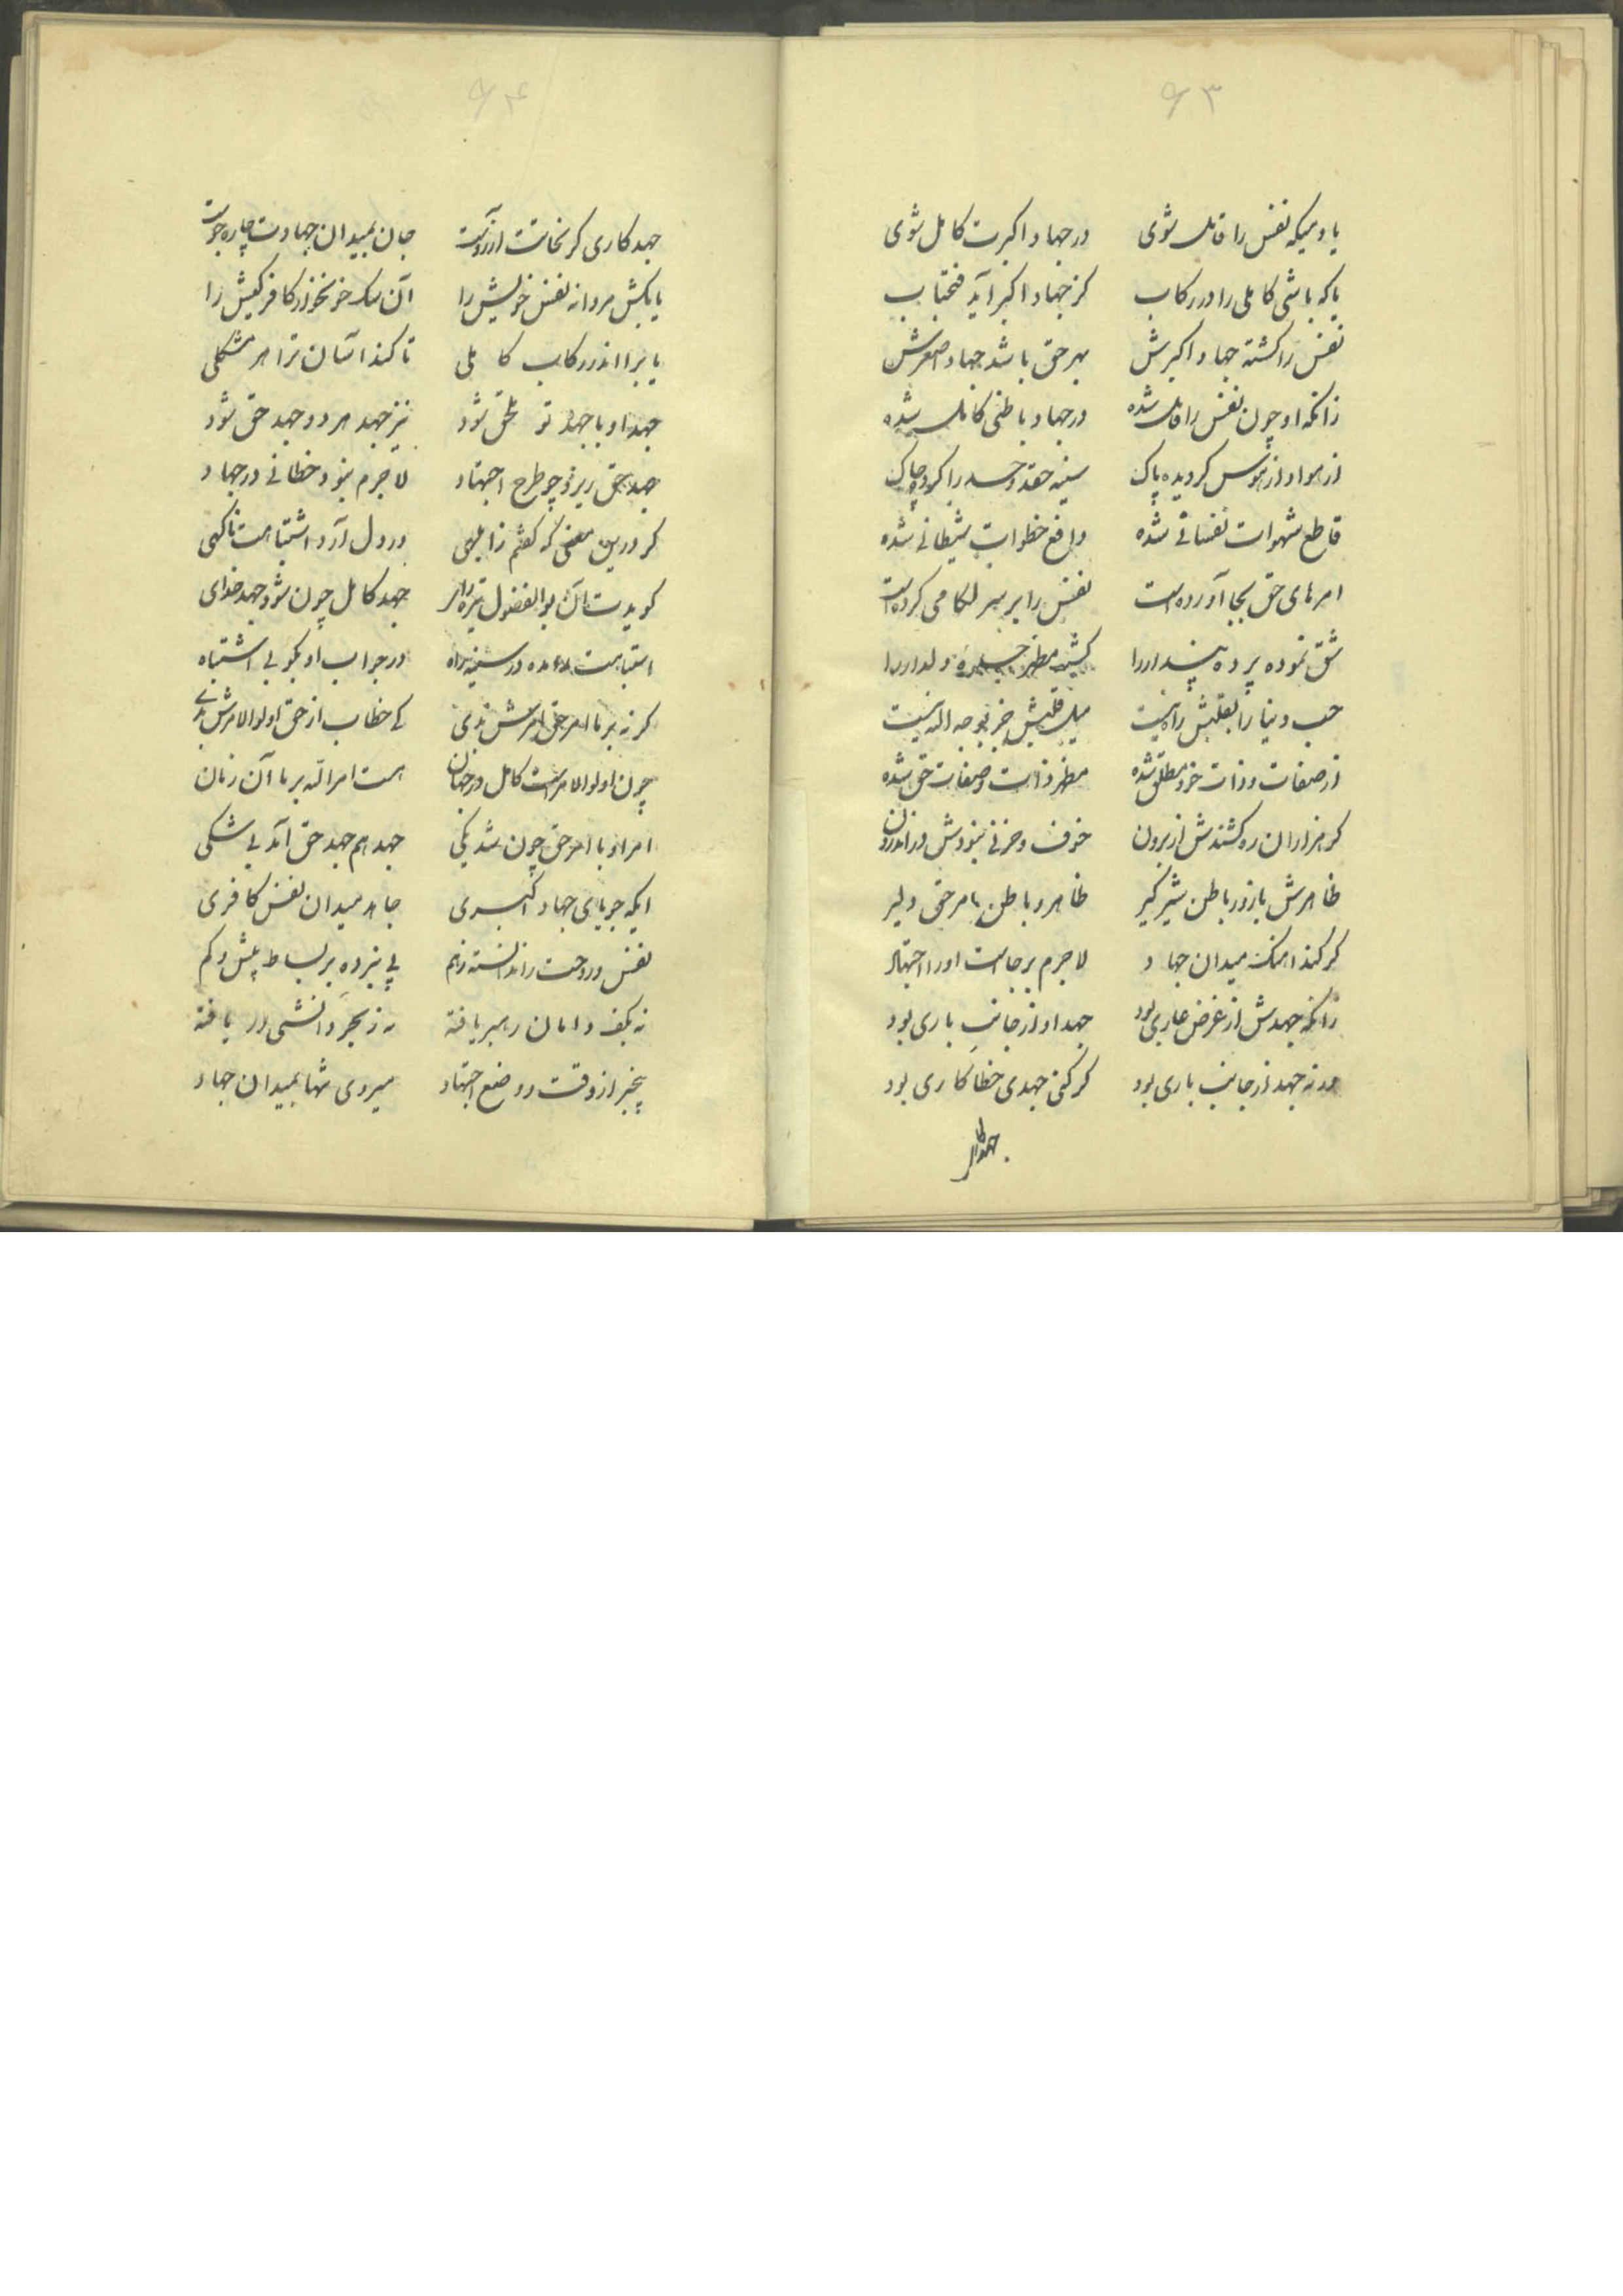 ۶۳
یا دمیکه نفس را قاتل شوی در جهاد اکبرت کامل شوی
یا که باشی کاملی را در رکاب کز جهاد اکبر آید فتحیاب
نفس را کشته جهاد اکبرش بهر حق باشد جهاد اصغرش
زانکه او چون نفس را قاتل شده در جهاد باطنی کامل شده
از هوا و از هوس کردیده پاک سینه حقد و حسد را کرده چاک
قاطع شهوات نفسانی شده دافع خطوات شیطانی شده
امرهای حق بجا آورده است نفس را بر سر لکامی کرده است
شق نموده پرده پندار را کشته مظهر جلوه دلدار را
حب دنیا را بقلبش راه نیست میل قلبش جز بوجه اله نیست
از صفات و ذات خود مطلق شده مظهر ذات و صفات حق شده
کر هزاران ره کشندش از برون خوف و حزنی نبودش در اندرون
ظاهرش بازور باطن شیر کیر ظاهر و باطن بامر حق دلیر
کر کند اهنک میدان جهاد لاجرم برجاست او را اجتهاد
زانکه جهدش از غرض عاری بود جهد او از جانب باری بود
ور نه جهد از جانب باری بود کر کنی جهدی خطا کاری بود
جهد کار
۶۴
جهد کاری کر نخانت ارزوست جان بمیدان جهادت چاره جوست
یا بکش مردانه نفس خویش را آن سک خونخوار کافر کیش را
یا برا اندر رکاب کاملی تا کند آسان ترا هر مشکلی
جهد او با جهد تو ملحق شود نیز جهد هر دو جهد حق شود
جهد حق ریزد چو طرح اجتهاد لاجرم نبود خطائی در جهاد
کر درین معنی که کفتم ز ابلهی در دل آرد اشتباهت ناکهی
کویدت آن بوالفضول تیره رای جهد کامل چون شود جهد خدای
در جواب او بکو بی اشتباه
کر نه بر ما امر حق امرش بدی کی خطاب از حق اولوالامرش بدی
چون اولوالامر است کامل در جهان هست امر الله بر ما آن زمان
امر او با امر حق چون شد یکی جهد هم جهد حق آمد بی شکی
ایکه جویای جهاد اکبری جاهد میدان نفس کافری
نفس و روحت را ندانسته ز هم پی نبرده بر بساط بیش و کم
نه بکف دامان رهبر یافته نه ز بحر دانشی در یافته
بیخبر از وقت و وضع اجتهاد میروی تنها بمیدان جهاد